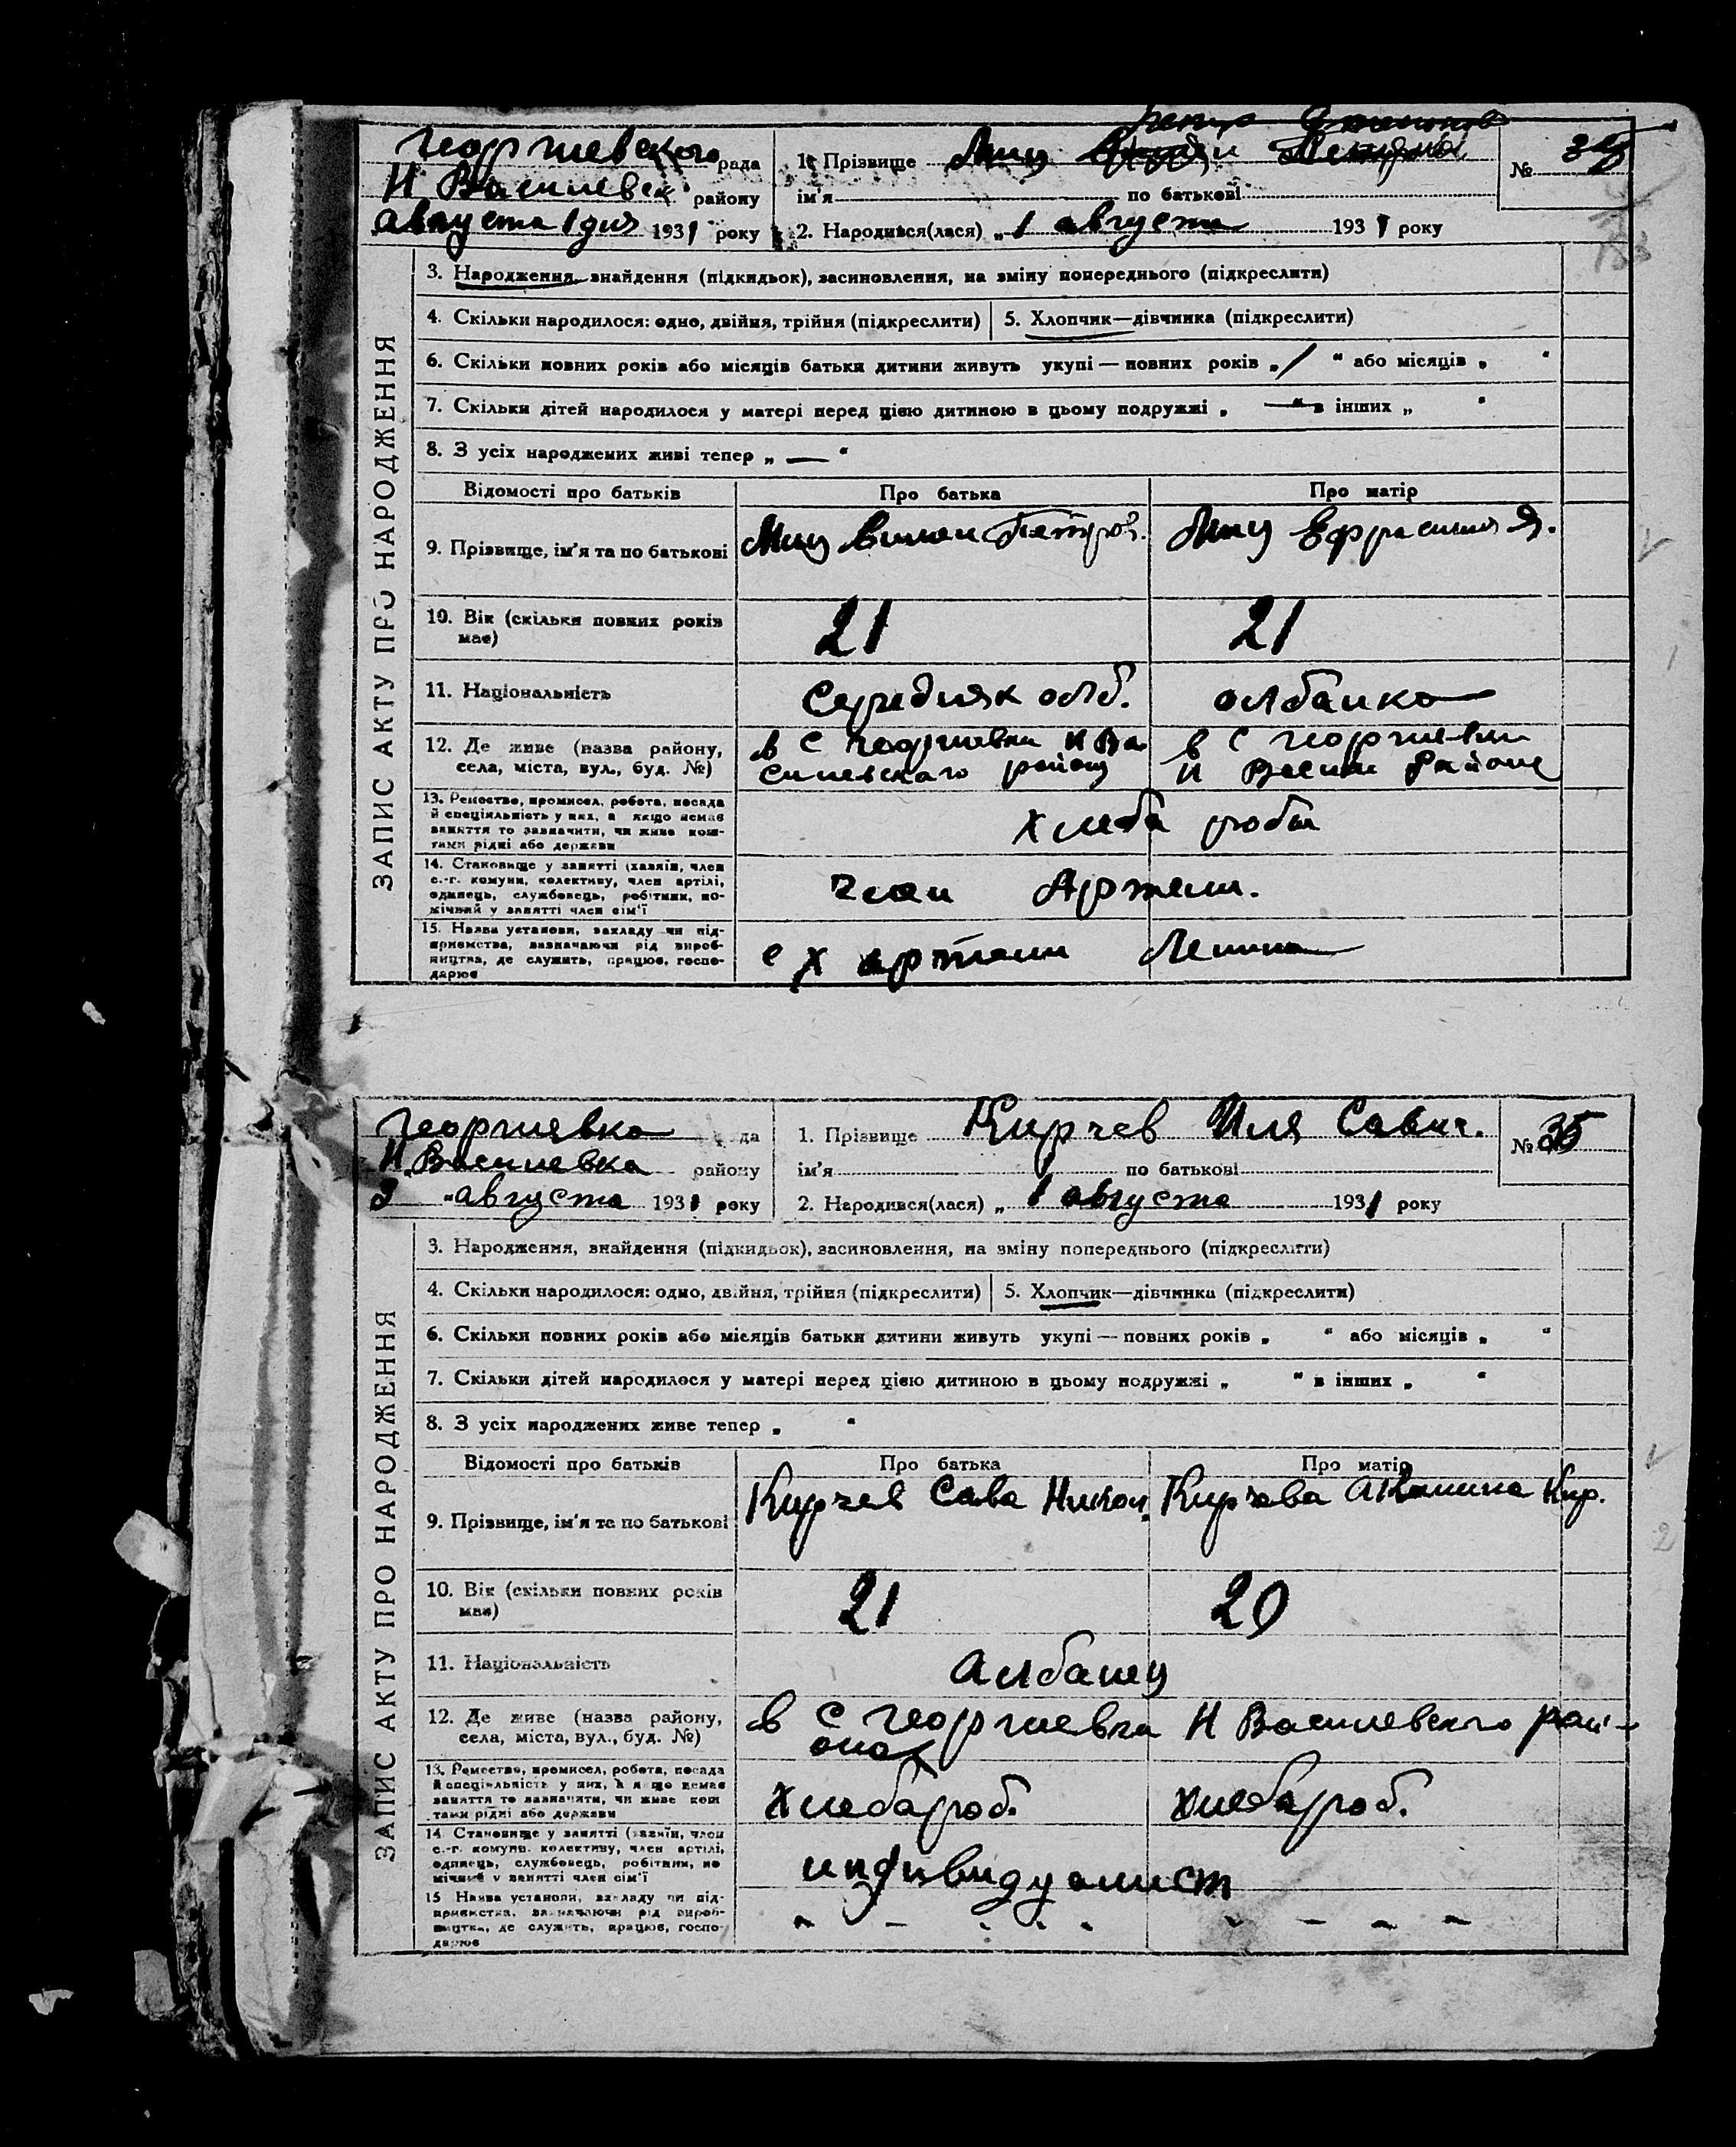 Георгиевского рада
Н Василиевск району
августа 1 дня 1931 року
1. Прізвище Миц
ім'я по батькові
№
2. Народився(лася) „ 1 августа 1931 року
ЗАПИС АКТУ ПРО НАРОДЖЕННЯ
3. Народження, знайдення (підкидьок), засиновлення, на зміну попереднього (підкреслити)
4. Скільки народилося: одно, двійня, трійня (підкреслити) 5. Хлопчик—дівчинка (підкреслити)
6. Скільки повних років або місяців батьки дитини живуть укупі — повних років „ 1 “ або місяців „ “
7. Скільки дітей народилося у матері перед цією дитиною в цьому подружжі „ — “ в інших „ “
8. З усіх народжених живі тепер „ — “
Відомості про батьків Про батька Про матір
9. Прізвище, ім'я та по батькові Миц Петров. Миц Ефросиния Я.
10. Вік (скільки повних років має) 21 21
11. Національність Середняк олб. олбанка
12. Де живе (назва району, села, міста, вул., буд. №) в с Георгиевки Н Ва- в с Георгиевки
силиевскаго району Н Васили Районе
13. Ремество, промисел, робота, посада
й спеціяльність у них, а якщо немає
заняття то зазначити, чи живе кош-
тами рідні або держави
Хлеба робы
14. Становище у занятті (хазяїн, член
с.-г. комуни, колективу, член артілі,
одинець, службовець, робітник, по-
мічний у занятті член сім'ї
член Артели.
15. Назва установи, закладу чи під-
приємства, зазначаючи рід вироб-
ництва, де служить, працює, госпо-
дарює
с х артели Ленина
Георгиевка да
Н. Василиевка району
3 „августа 1931 року
1. Прізвище Кирчев Иля Савич.
ім'я по батькові
№ 35
2. Народився(лася) „ 1 августа 1931 року
ЗАПИС АКТУ ПРО НАРОДЖЕННЯ
3. Народження, знайдення (підкидьок), засиновлення, на зміну попереднього (підкреслити)
4. Скільки народилося: одно, двійня, трійня (підкреслити) 5. Хлопчик—дівчинка (підкреслити)
6. Скільки повних років або місяців батьки дитини живуть укупі — повних років „ “ або місяців „ “
7. Скільки дітей народилося у матері перед цією дитиною в цьому подружжі „ “ в інших „ “
8. З усіх народжених живе тепер „ “
Відомості про батьків Про батька Про матір
9. Прізвище, ім'я та по батькові Кирчев Сава Никол. Кирчева Акилина Кир.
10. Вік (скільки повних років має) 21 20
11. Національність Албанец
12. Де живе (назва району, села, міста, вул., буд. №) в с Георгиевка Н Василиевского рай-
она
13. Ремество, промисел, робота, посада
й спеціяльність у них, а якщо немає
заняття то зазначити, чи живе кош
тами рідні або держави
Хлебароб. хлебароб.
14. Становище у занятті (хазяїн, член
с.-г. комуни, колективу, член артілі,
одинець, службовець, робітник, по
мічний у занятті член сім'ї
индивидуалист
15 Назва установи, закладу чи під-
приємства, зазначаючи рід вироб-
ництва, де служить, працює, госпо-
дарює